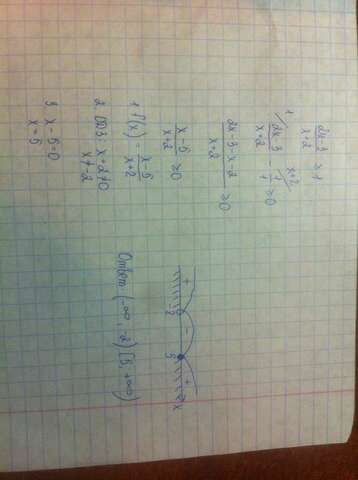 (2x-3)/(x+2) ≥ 1
(2x-3)/(x+2) - 1/1 ≥ 0
(2x-3-x-2)/(x+2) ≥ 0
(x-5)/(x+2) ≥ 0
1 f(x) = (x-5)/(x+2)
2. ОДЗ: x+2≠0
x≠-2
3 x-5=0
x=5
+ - +
-2 5 x
Ответ: (-∞; -2) [5; +∞)